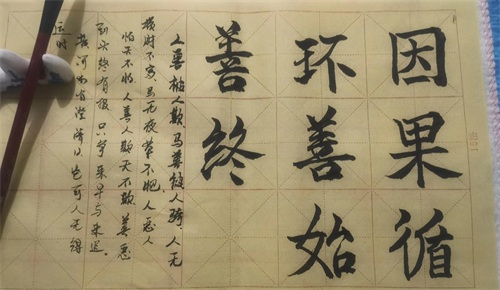 因果循
环善始
善终
人善被人欺，马善被人骑，人无
横财不富，马无夜草不肥，人恶人
怕天不怕，人善人欺天不欺，善恶
到头终有报，只争来早与来迟。
黄河尚有澄清日，岂可人无得
运时